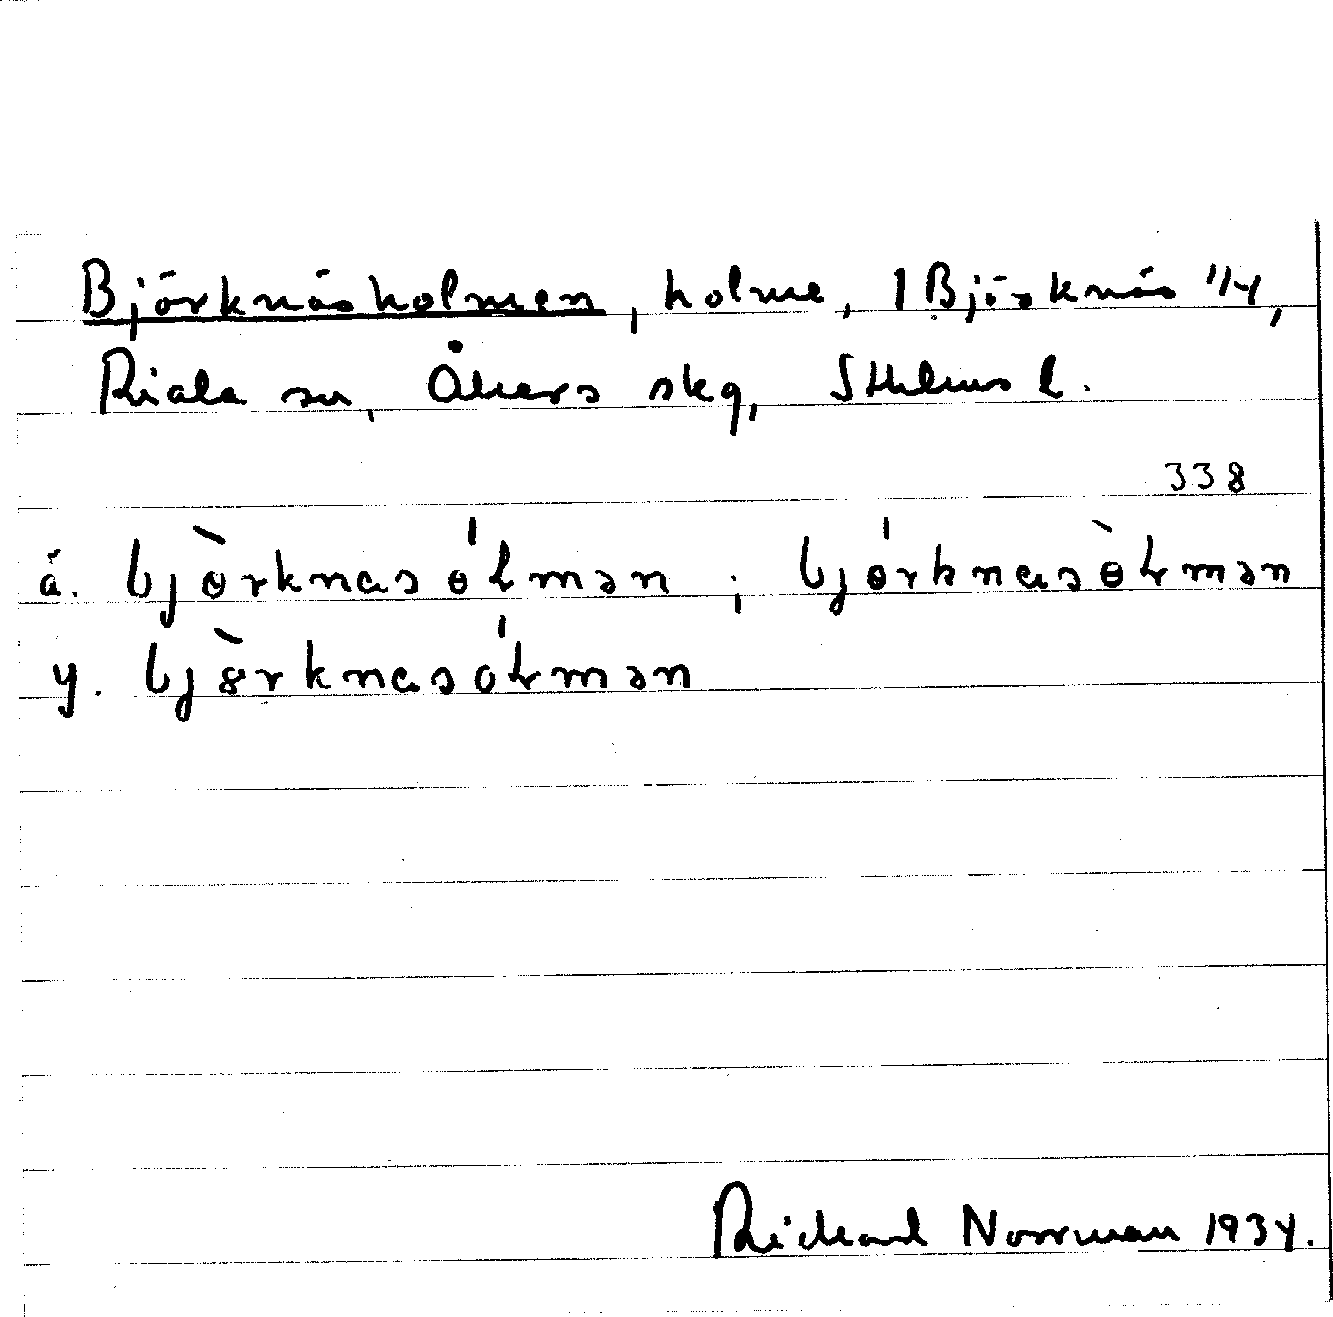 Björknäsholmen, holme, 1 Björknäs 1/4,
Riala sn, Åkers skg, Sthlms l.
338
ä. bjɵ̀rknasɵ́ɫmən ; bjɵ́rknasɵ̀ɫmən
y. bj8̀rknasóɫmən
Rickard Norrman 1934.